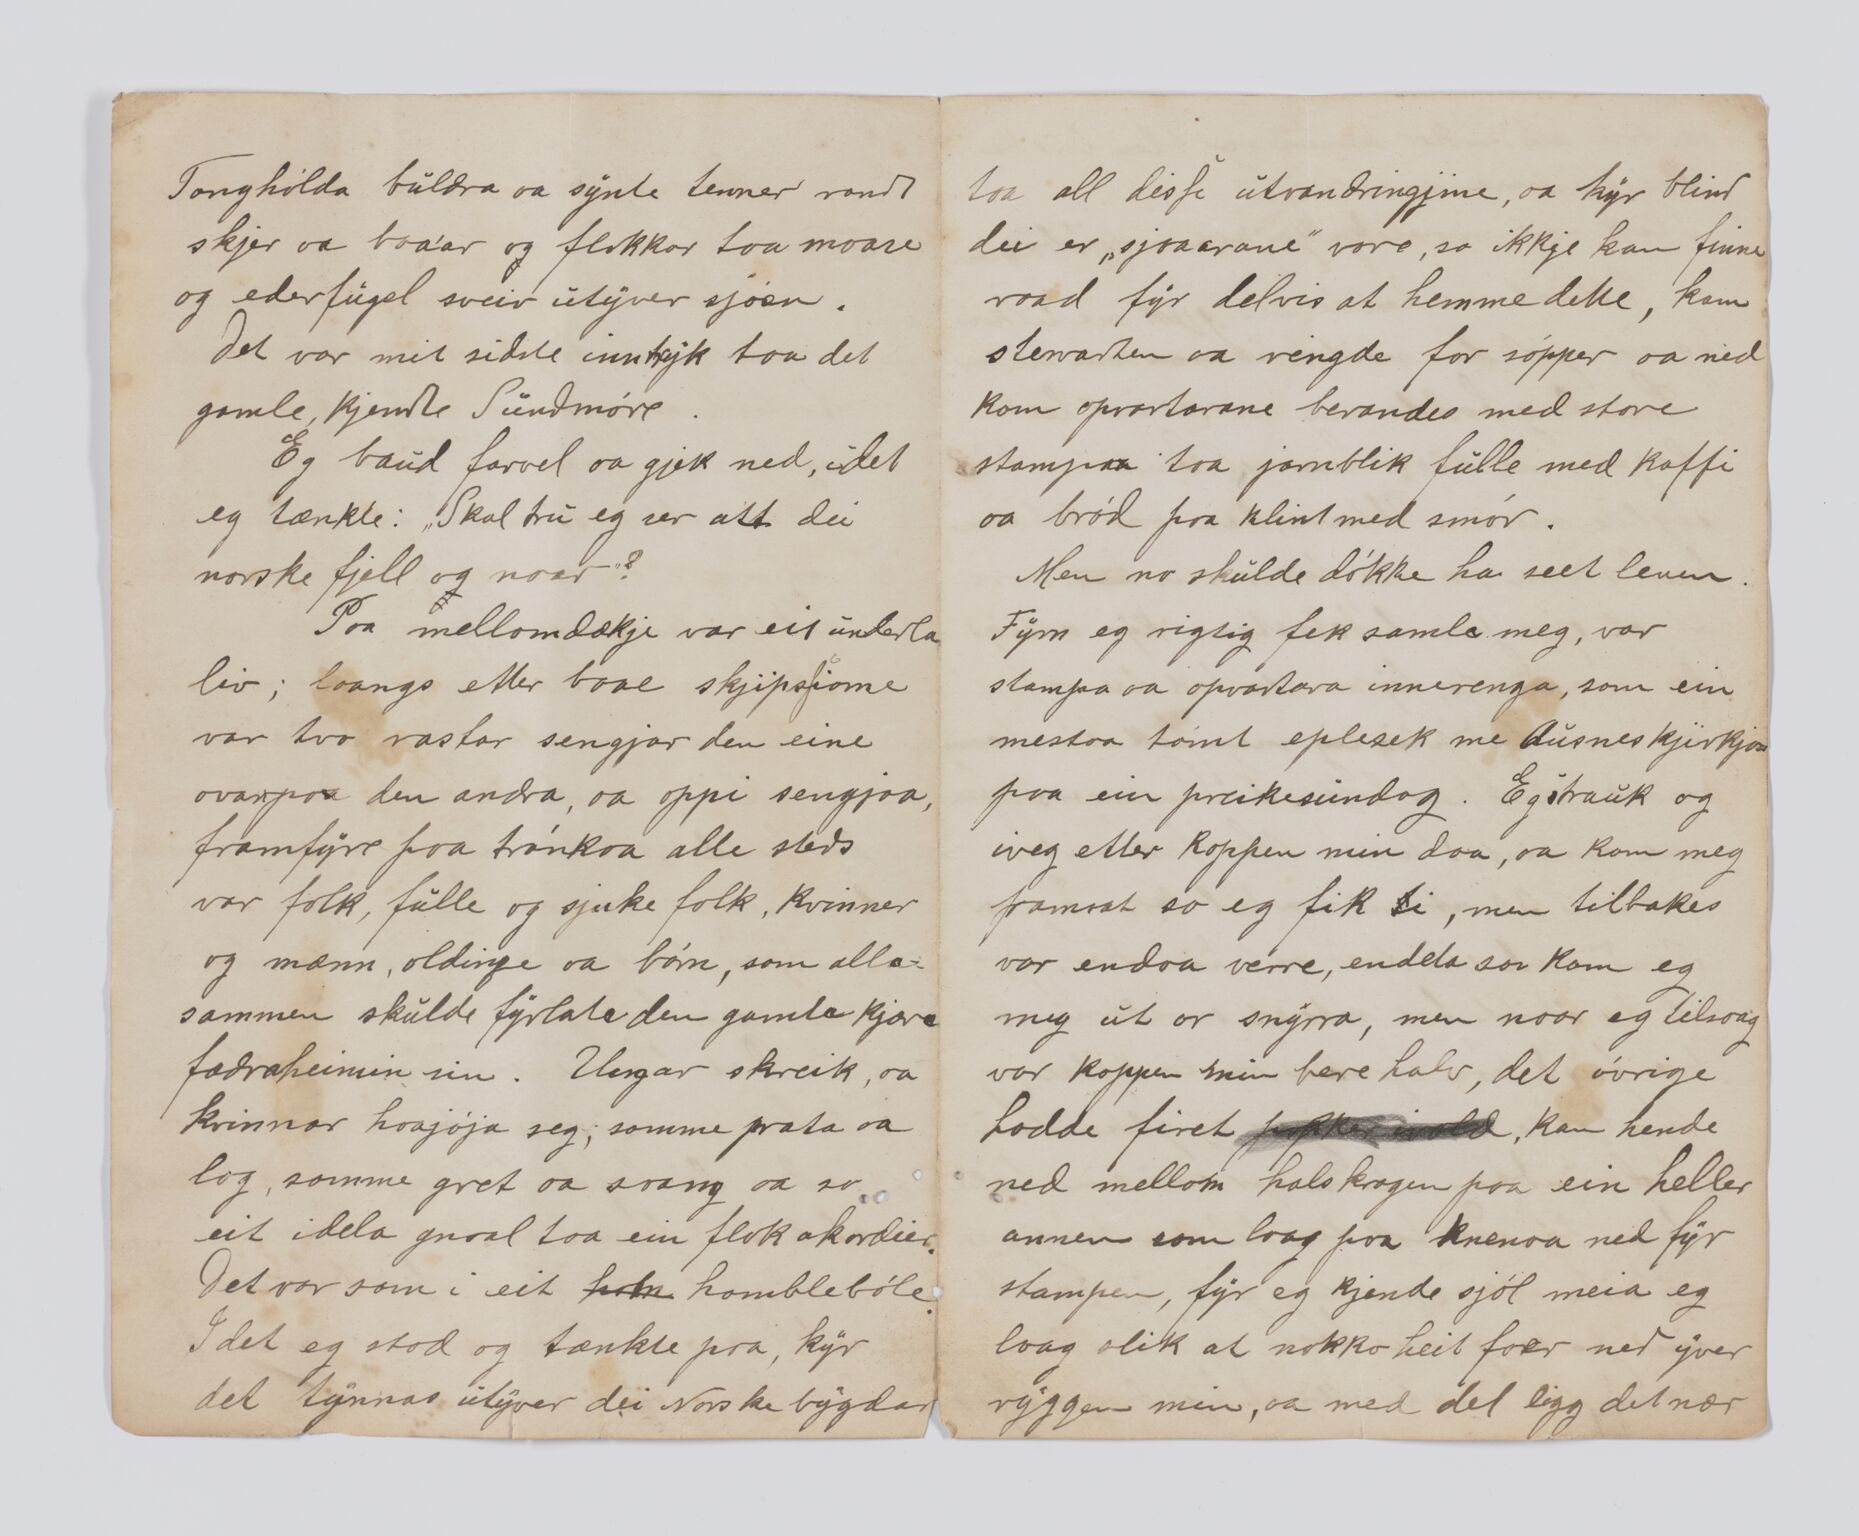 Tonghólda buldra oa synte tenner rondt
skjer oa boaar og flokkar toa moase
og ederfugel sveiv utyver sjóen.
Det var mit sidste inntryk toa det
gamle, kjendte Sundmóre.
Eg baud farvel oa gjek ned, idet
eg tænkte: „Skal tru eg ser att dei
norske fjell og noar"?
Poa mellomdækje var eit underla
liv; loangs etter boae skjipssiome
var tvo rastar sengjar den eine
ovanpoa den andra, oa oppi sengjoa,
framfyre poa trónkoa alle steds
var folk, fulle og sjuke folk, kvinner
og mænn, oldinge oa bórn, som alle-
sammen skulde fyrlate den gamle kjære
fædraheimin sin. Ungar skreik, oa
kvinnar hoajója seg; somme prata oa
log, somme gret oa soang oa so
eit idela gnoal toa ein flok akordier.
Det var som i eit homblebóle.
I det eg stod og tænkte poa, kyr
det tynnas utyver dei Norske bygdar
toa all disse utvandringjine, oa kyr blind
dei er „sjoaarane" vore, so ikkje kan finne
road fyr delvis at hemme dette, kom
stewarten oa ringde for sópper oa ned
kom opvartarane berandes med store
stampaa toa jarnblik fulle med kaffi
oa bród poa klint med smór.
Men no skulde dókke ha seet leven.
Fyrn eg rigtig fek samle meg, var
stampa oa opvartara innerenga, som ein
mestoa tómt eplesek me Ausneskjirkjoa
poa ein preikesundag. Eg strauk og
iveg etter koppen min doa, oa kom meg
framoat so eg fik ti, men tilbakes
var endoa verre, endela soa kom eg
meg ut or snyrra, men noar eg tilsoag
var koppen min bere halv, det óvrige
hadde firet kan hende
ned mellom halskragen poa ein heller
annen som loag poa knenoa ned fyr
stampen, fyr eg kjende sjól meia eg
loag slik at nokko heit foer ned yver
ryggen min, oa med det ligg det nær